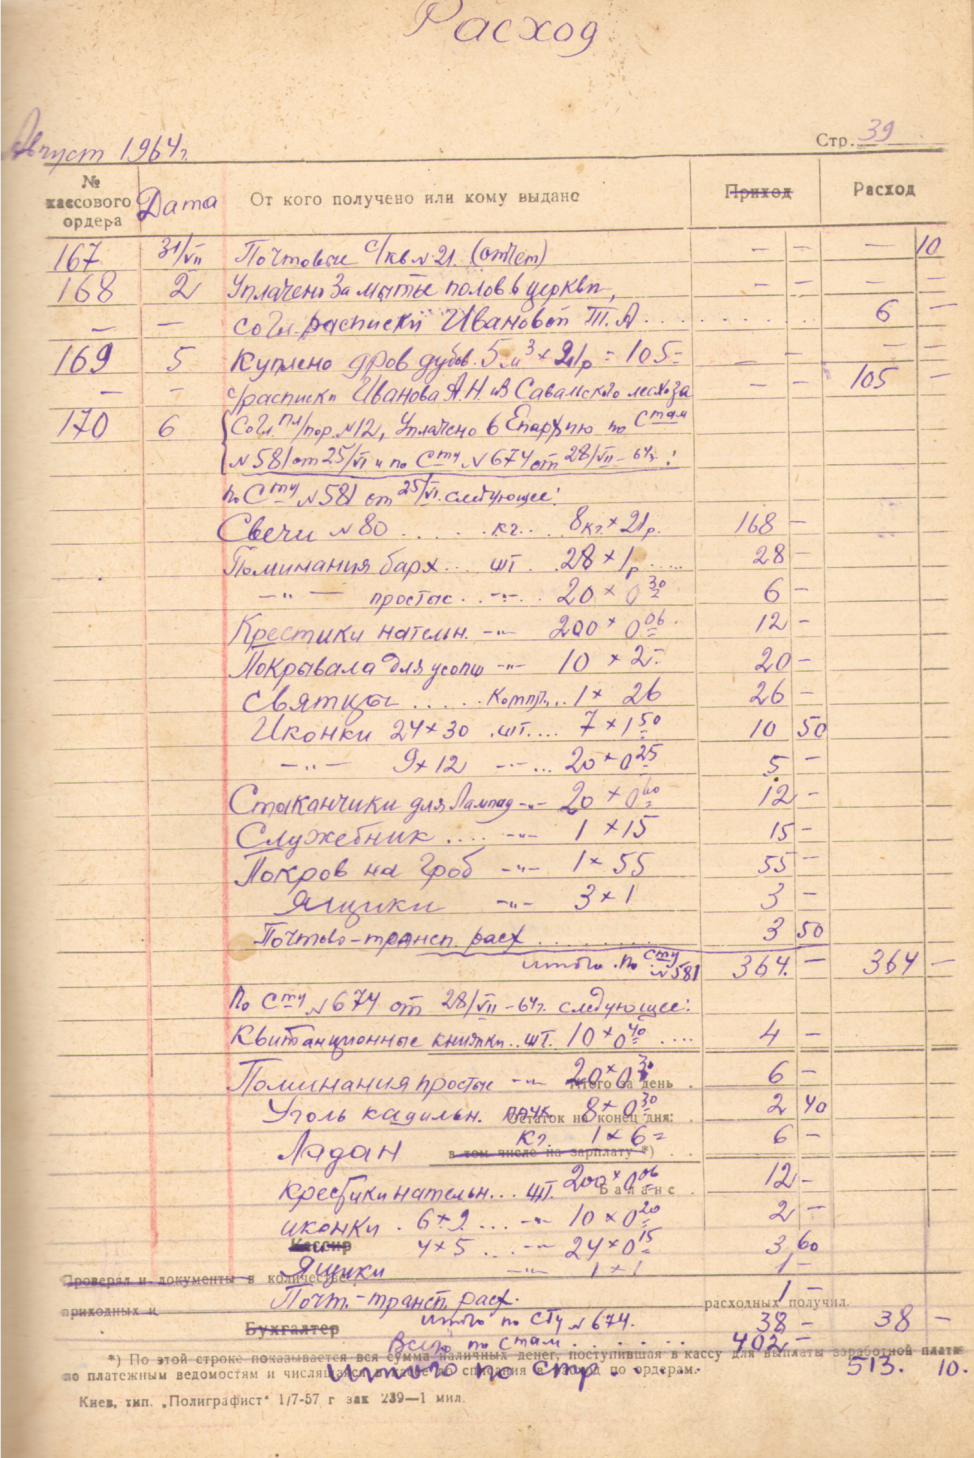 Расход
Август 1964г.
Стр. 39
№ кассового ордера Дата От кого получено или кому выдано Приход Расход
167 31/VII Почтовые с/кв №21. (отчет) — — — 10
168 2 Уплачено за мытье полов в церкви, — — — —
— — согл. расписки Ивановой Т. А. 6 —
169 5 Куплено дров дубов. 5 м³ × 21р = 105= — — — —
— — с/расписки Иванова А.Н. из Савальского лесхоза — — 105 —
170 6 Согл. пл/пор. №12, Уплачено в Епархию по Стам
№581 от 25/VI и по Сту №674 от 28/VII–64г.:
По Сту №581 от 25/VI. следующее:
Свечи №80 ...... кг... 8кг. × 21р. 168 —
Поминания барх... шт. .28 × 1р..... 28 —
—"— простые..-"-.. 20 × 0 30 6 —
Крестики нательн. -"- 200 × 0 06. 12 —
Покрывала для усопш -"- 10 × 2= 20 —
Святцы ...... Компл... 1 × 26 26 —
Иконки 24×30 .шт.... 7 × 1 50 10 50
—"— 9×12 -"-... 20 × 0 25 5 —
Стаканчики для Лампад -"- 20 × 0 60 12 —
Служебник .... -"- 1 × 15 15 —
Покров на гроб -"- 1 × 55 55 —
Ящики -"- 3 × 1 3 —
Почтово-трансп. расх.......... 3 50
итого. по Сту №581 364. — 364 —
По Сту №674 от 28/VII–64г. следующее:
Квитанционные книжки.. шт. 10 × 0 40 .... 4 —
Поминания простые -"- 20 × 0 30 6 —
Итого за день .
Уголь кадильн. пачк 8 × 0 30 2 40
Остаток на конец дня:
Ладан кг. 1 × 6= 6 —
в том числе на зарплату *) . .
Крестики нательн... шт. 200 × 0 06 12 —
Баланс .
иконки . 6×9... -"- 10 × 0 20 2 —
Кассир 4×5 ... -"- 24 × 0 15 3,60
Ящики -"- 1 × 1 1 —
Проверял и документы в количестве
Почт.-трансп. расх. 1 —
приходных и расходных получил.
итого по Сту №674. 38 — 38 —
Бухгалтер
Всего по стам ...... 402 —
*) По этой строке показывается вся сумма наличных денег, поступившая в кассу для выплаты заработной платы
по платежным ведомостям и числящаяся по ордерам.
Итого по стр. 513. 10.
Киев, тип. „Полиграфист" 1/7-57 г зак 239—1 мил.